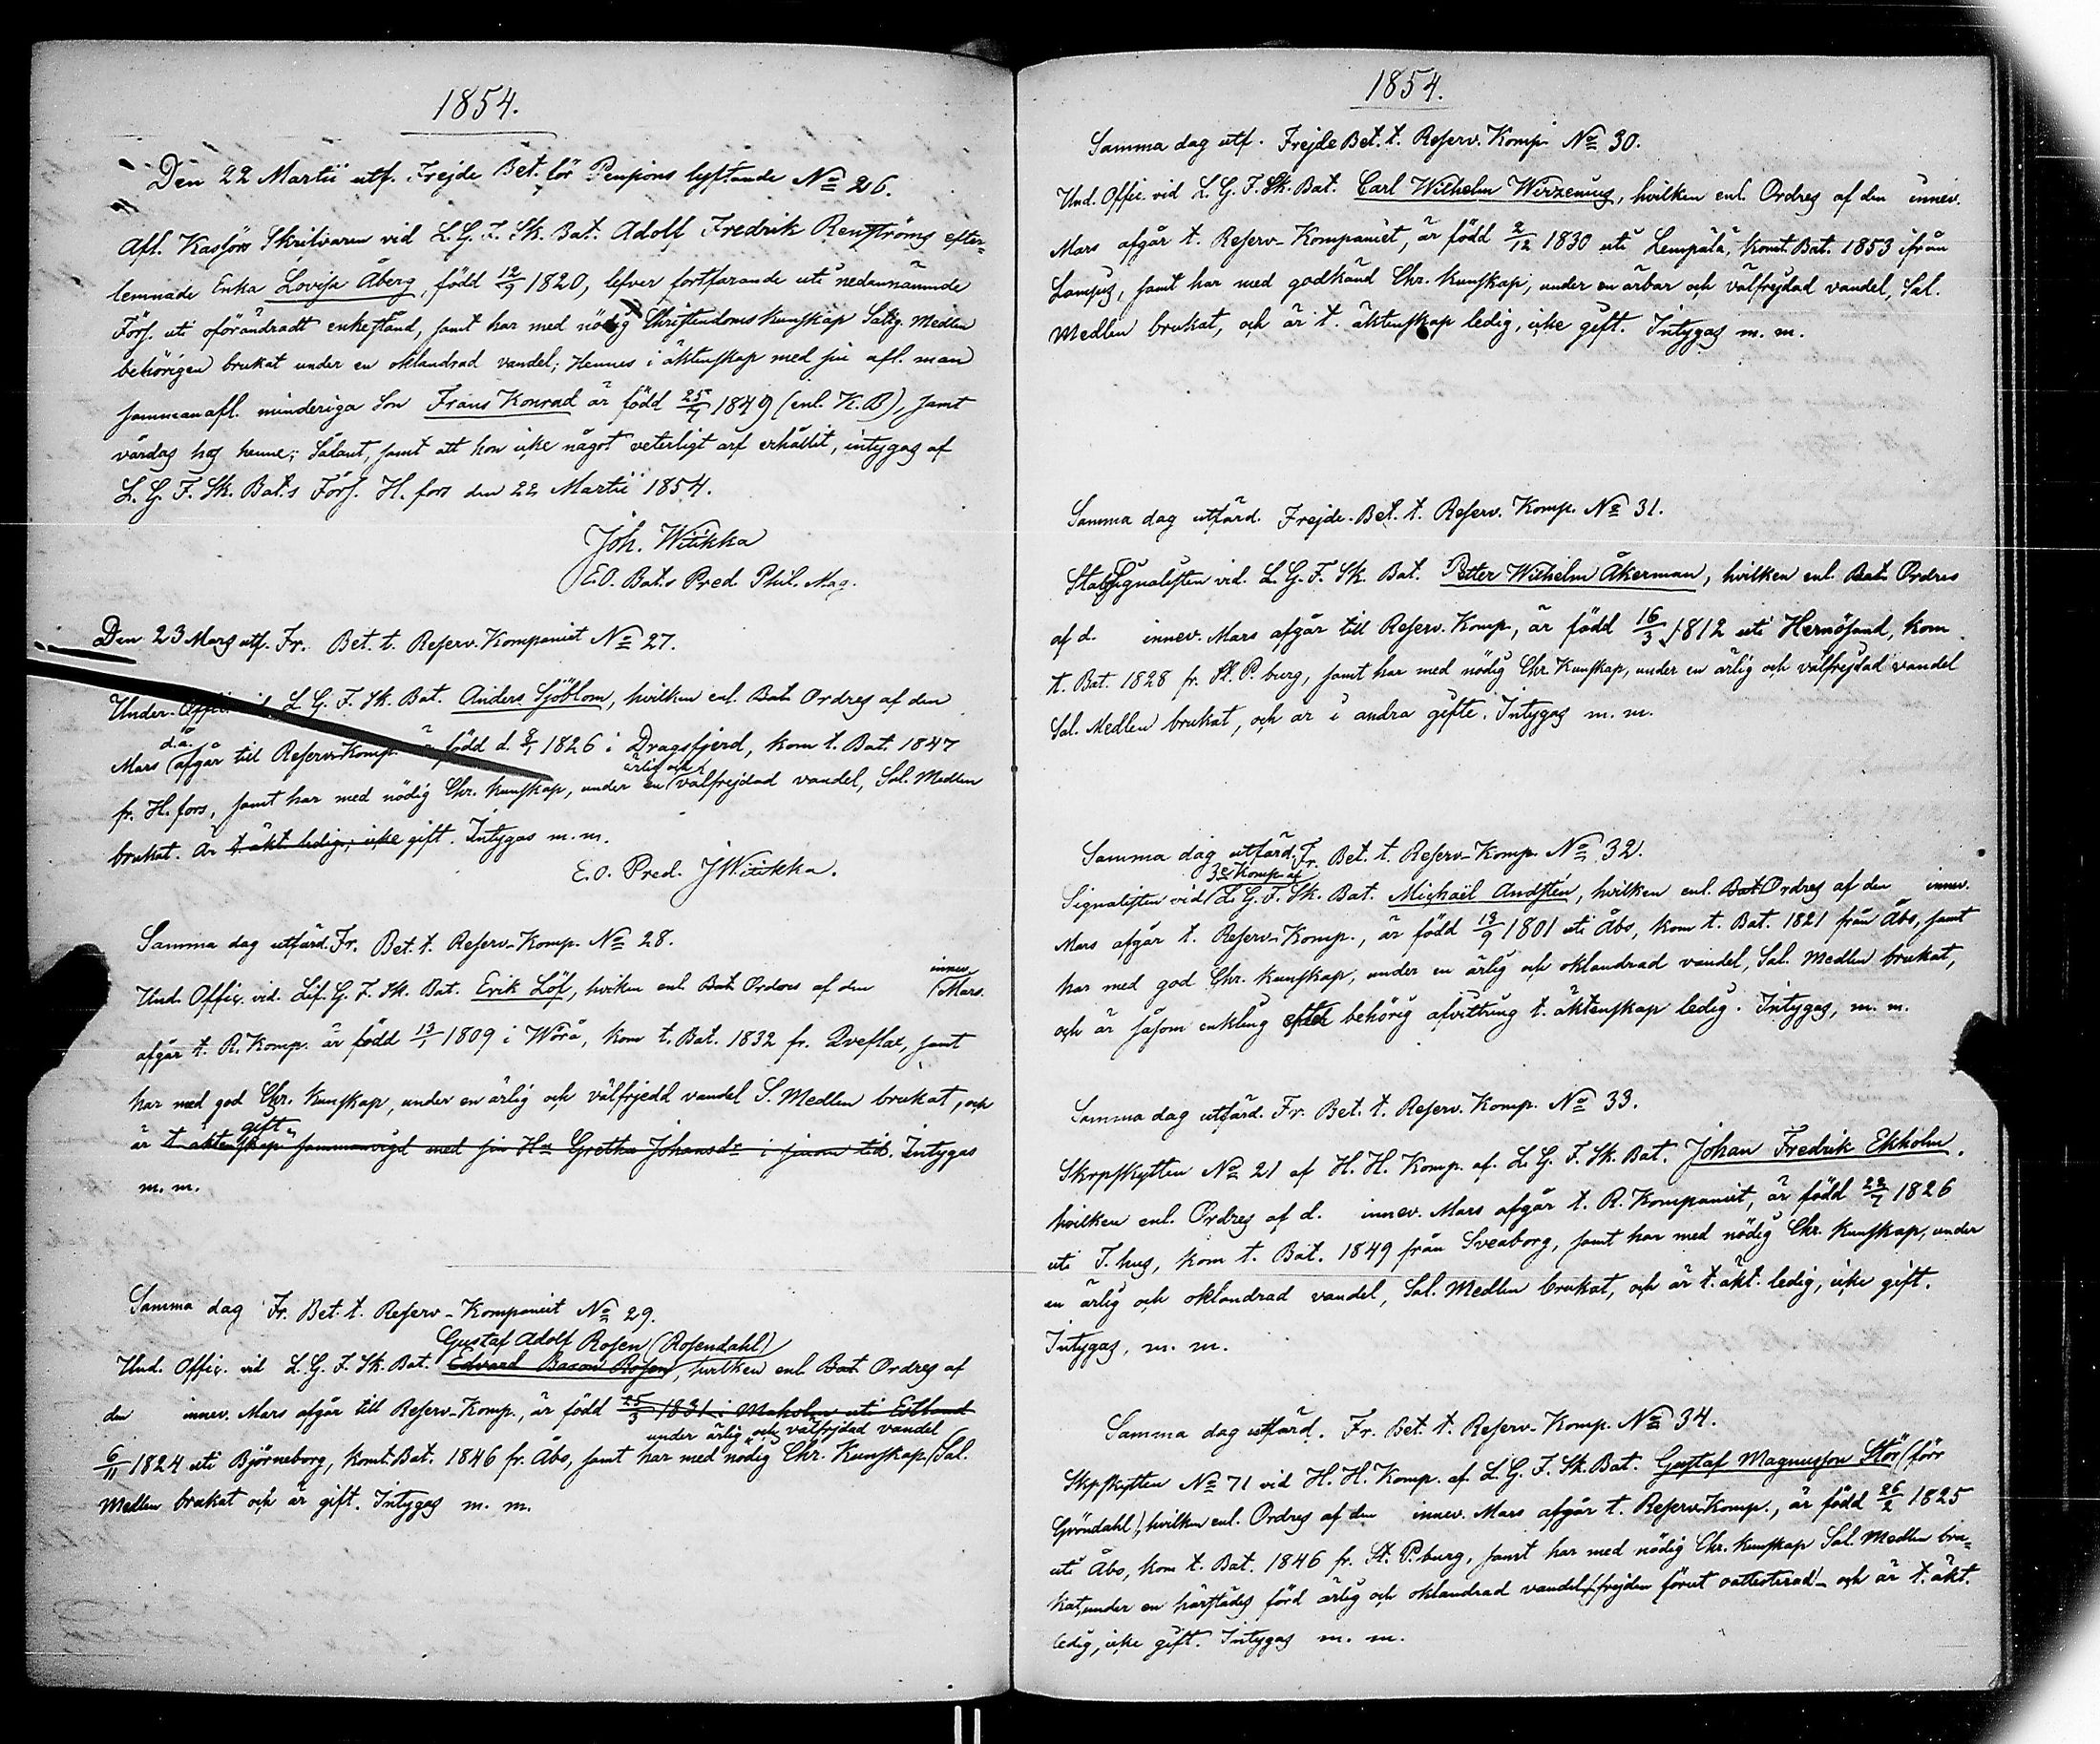 1854.
Den 22 Martii utf. Frejde Bet. för Pensions lyftande No 26.
Afl. Kassörs Skrifvaren vid L. G. F. Sk. Bat. Adolf Fredrik Renströms efter-
lemnade Enka Lovisa Åberg, född 12/9 1820, lefver fortfarande uti nedannämnde
Förs. uti oförändradt enkestånd, samt har med nödig Christendoms kunskap Salig. Medlen
behörigen brukat under en oklandrad vandel; Hennes i äktenskap med sin afl. man
sammanafl. minderiga Son Frans Konrad är född 25/4 1849 (enl. K. B), samt
vårdas hos henne; Sådant, samt att hon icke något veterligt arf erhållit, intygas af
L. G. F. Sk. Bat:s Förs. H. fors den 22 Martii 1854.
Joh. Witikka
E.O. Bat:s Pred. Phil. Mag.
Den 23 Mars utf. Fr. Bet. t. Reserv. Kompaniet No 27.
Under-Offic. vid L. G. F. Sk. Bat. Anders Sjöblom, hvilken enl. Bat. Ordres af den
d.å.
Mars afgår till Reserv-Komp. är född d. 8/1 1826 i Dragsfjerd, kom t. Bat. 1847
ärlig och
fr. H. fors, samt har med nödig Chr. kunskap, under en välfrejdad vandel, Sal. Medlen
brukat. är t. äkt. ledig, icke gift. Intygas m. m.
E.O. Pred. J Witikka.
Samma dag utfärd. Fr. Bet. t. Reserv-Komp. No 28.
innev.
Und. Offic. vid Lif. G. F. Sk. Bat. Erik Löf, hvilken enl. Bat. Ordres af den Mars.
afgår t. R. Komp. är född 13/1 1809 i Wörå, kom t. Bat. 1832 fr. Qveflax, samt
har med god Chr. Kunskap, under en ärlig och välfrejdd vandel S. Medlen brukat, och
gift
är t. äktenskap sammanvigd med sin Hu Gretha Johansdr i sinom tid. Intygas
m. m.
Samma dag Fr. Bet. t. Reserv-Kompaniet No 29.
Gustaf Adolf Rosen (Rosendahl)
Und. Offic. vid L. G. F. Sk. Bat. Edvard Baron Rosen, hvilken enl. Bat. Ordres af
den innev. Mars afgår till Reserv-Komp., är född 25/3 1831 i Maholm uti Estland
under ärlig och välfrejdad vandel
6/11 1824 uti Björneborg, kom t. Bat. 1846 fr. Åbo, samt har med nödig Chr. Kunskap, Sal.
Medlen brukat och är gift. Intygas m. m.
1854.
Samma dag utf. Frejde Bet. t. Reserv. Komp. No 30.
Und. Offic. vid L. G. F. Sk. Bat. Carl Wilhelm Wirzenius, hvilken enl. Ordres af den innev.
Mars afgår t. Reserv-Kompaniet, är född 2/12 1830 uti Lempälä, kom t. Bat. 1853 ifrån
Lampis, samt har med godkänd Chr. kunskap, under en ärbar och välfrejdad vandel, Sal.
Medlen brukat, och är t. äktenskap ledig, icke gift. Intygas m. m.
Samma dag utfärd. Frejde-Bet. t. Reserv. Komp. No 31.
Stabssignalisten vid L. G. F. Sk. Bat. Petter Wilhelm Åkerman, hvilken enl. Bat. Ordres
af d. innev. Mars afgår till Reserv. Komp, är född 16/3 1812 uti Hernösand, kom
t. Bat. 1828 fr. St. P. burg, samt har med nödig Chr. Kunskap, under en ärlig och välfrejdad vandel
Sal. Medlen brukat, och är i andra gifte. Intygas m. m.
Samma dag utfärd. Fr. Bet. t. Reserv-Komp. No 32.
3e Komp. af
Signalisten vid L. G. F. Sk. Bat. Michaël Andstén, hvilken enl. Bat Ordres af den innev.
Mars afgår t. Reserv-Komp., är född 13/9 1801 uti Åbo, kom t. Bat. 1821 från Åbo, samt
har med god Chr. kunskap, under en ärlig och oklandrad vandel, Sal. Medlen brukat,
och är såsom enkling efter behörig afvittring t. äktenskap ledig. Intygas, m. m.
Samma dag utfärd. Fr. Bet. t. Reserv. Komp. No 33.
Skrpskytten No 21 af H. H. Komp. af L. G. F. Sk. Bat. Johan Fredrik Ekholm.
hvilken enl. Ordres af d. innev. Mars afgår t. R. Kompaniet, är född 22/7 1826
uti T. hus, kom t. Bat. 1849 från Sveaborg, samt har med nödig Chr. Kunskap, under
en ärlig och oklandrad vandel, Sal. Medlen brukat, och är t. äkt. ledig, icke gift.
Intygas, m. m.
Samma dag utfärd. Fr. Bet. t. Reserv-Komp. No 34.
Skpskytten No 71 vid H. H. Komp. af L. G. F. Sk. Bat. Gustaf Magnusson Stör (förr
Gröndahl), hvilken enl. Ordres af den innev. Mars afgår t. Reserv-Komp., är född 26/2 1825
uti Åbo, kom t. Bat. 1846 fr. St. P. burg, samt har med nödig Chr. kunskap Sal. Medlen bru-
kat, under en härstädes förd ärlig och oklandrad vandel (frejden förut oattesterad) och är t. äkt.
ledig, icke gift. Intygas m. m.